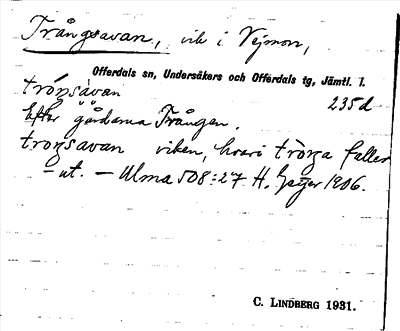 Trångsavan, vik i Vejmon,
Offerdals sn, Undersåkers och Offerdals tg, Jämtl. l.
tróŋsavan 235d
Efter gårdarna Trången.
troŋsavan viken, hvari tròŋa faller
– ut. – Ulma 508:27 H. Geijer 1906.
C. LINDBERG 1931.